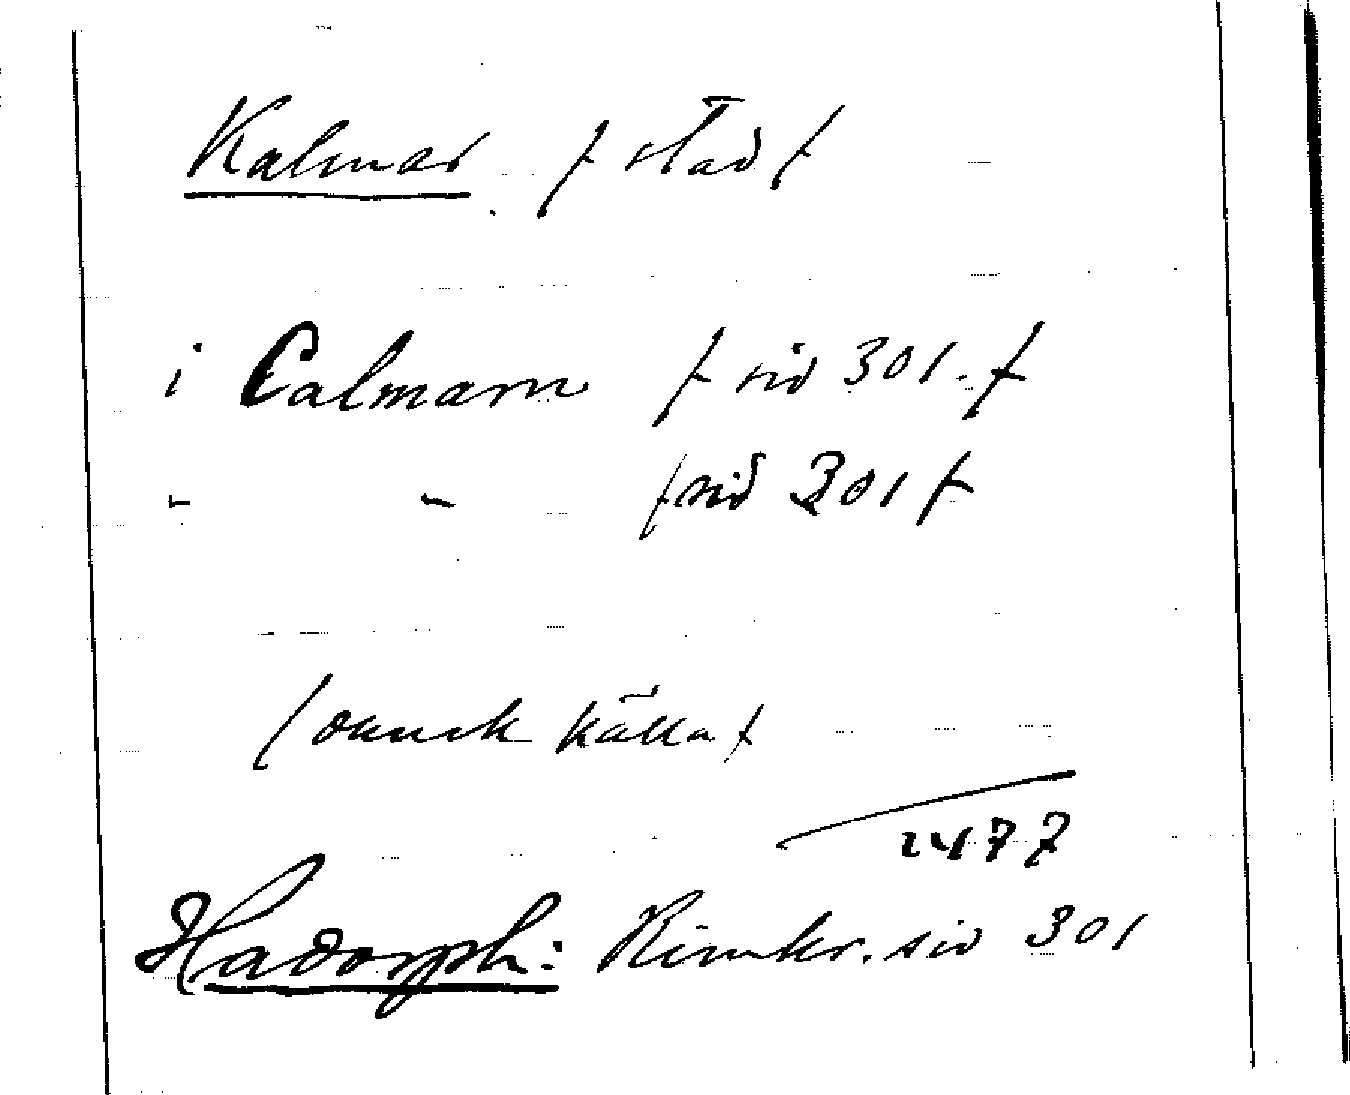 Kalmar / stad /
i Calmarn / sid 301. /
" " / sid 301 /
( dansk källa )
1477
Hadorph: Rimkr. sid 301